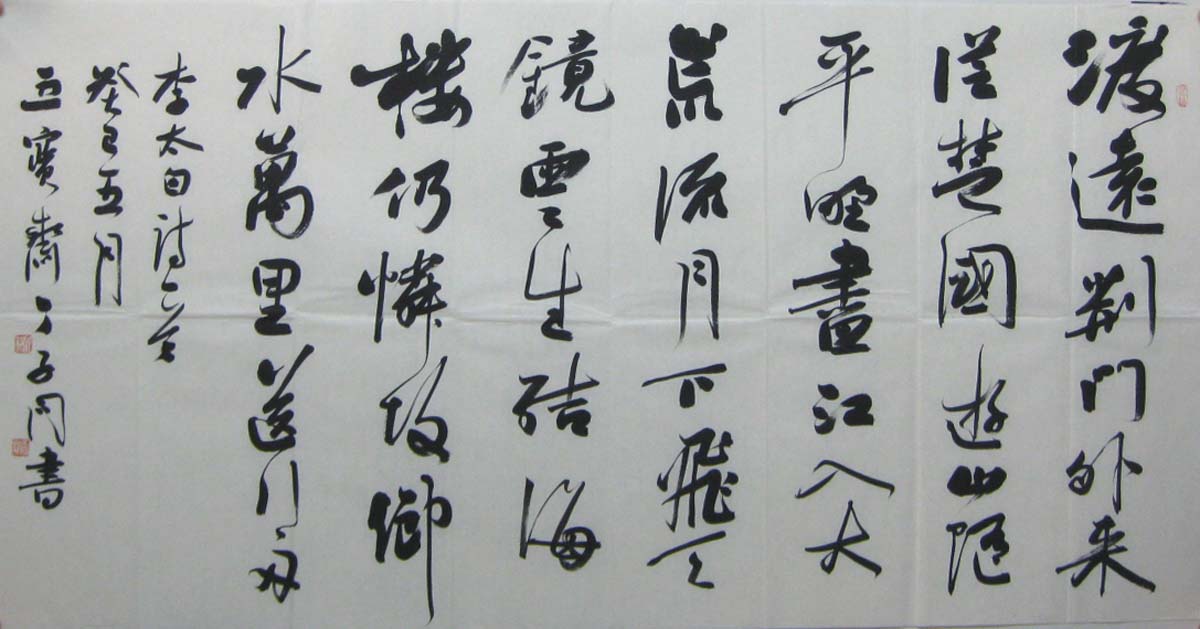 渡遠荆门外来
從楚國遊山隨
平野盡江入大
荒流月下飛天
鏡雲生結海
樓仍憐故鄉
水萬里送行舟
李太白詩一首
癸巳五月
五寶齋子書